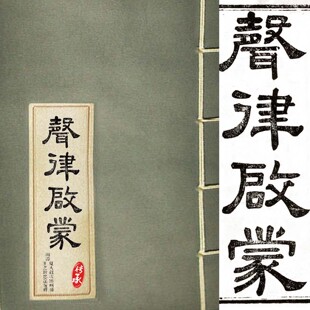 聲律啟蒙
聲律啟蒙
传承